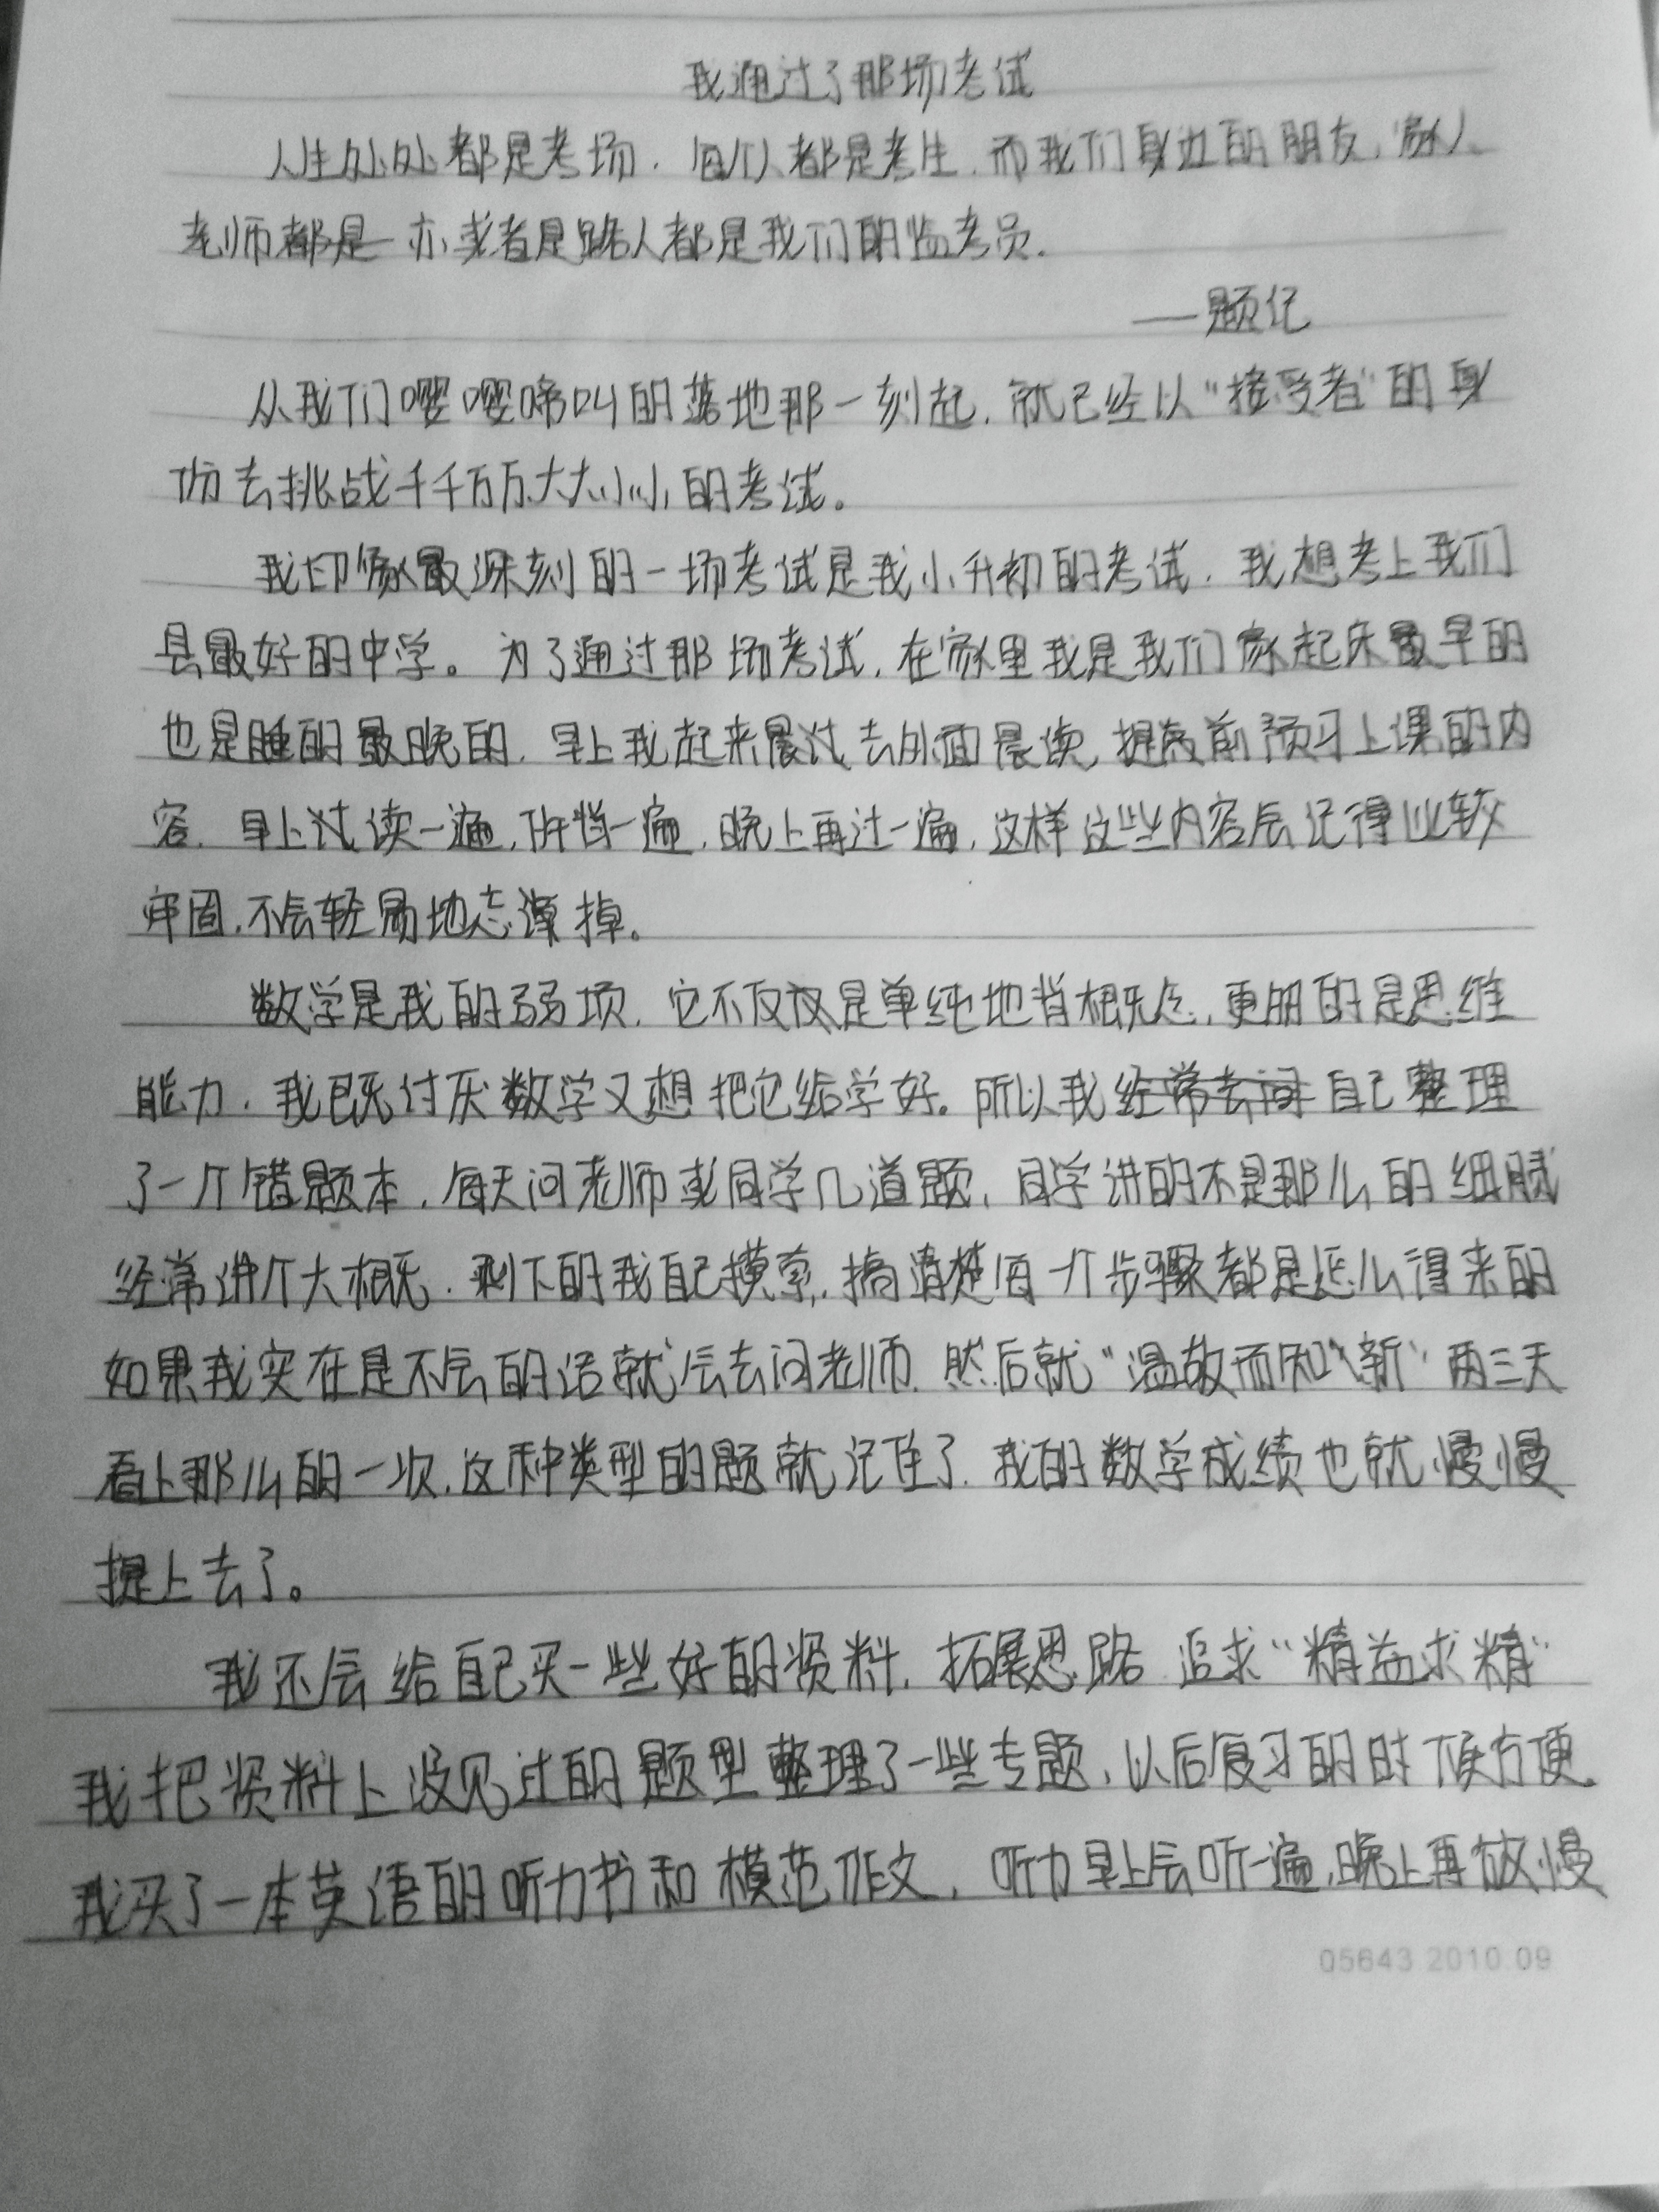 我通过了那场考试
人生处处都是考场.每个人都是考生.而我们身边的朋友,家人
老师都是亦或者是路人都是我们的监考员.
——题记
从我们嘤嘤啼叫的落地那一刻起.就已经以“接受者”的身
份去挑战千千万万大大小小的考试。
我印象最深刻的一场考试是我小升初的考试.我想考上我们
县最好的中学。为了通过那场考试,在家里我是我们家起床最早的
也是睡的最晚的.早上我起来晨过去外面晨读,提高前预习上课的内
容.早上过读一遍,听一遍,晚上再过一遍,这样这些内容会记得比较
牢固,不会轻易地忘掉。
数学是我的弱项.它不仅仅是单纯地背概念,更多的是思维
能力.我既讨厌数学又想把它给学好。所以我经常去问自己整理
了一个错题本,每天问老师或同学几道题,同学讲的不是那么的细腻
经常讲个大概.剩下的我自己摸索,搞清楚每一个步骤都是怎么得来的
如果我实在是不会的话就会去问老师.然后就“温故而知新”两三天
看上那么的一次,这种类型的题就记住了.我的数学成绩也就慢慢
提上去了。
我还会给自己买一些好的资料,拓展思路 追求“精益求精”
我把资料上没见过的题型整理了一些专题,以后复习的时候方便.
我买了一本英语的听力书和模范作文,听力早上会听一遍,晚上再放慢
05643 2010.09